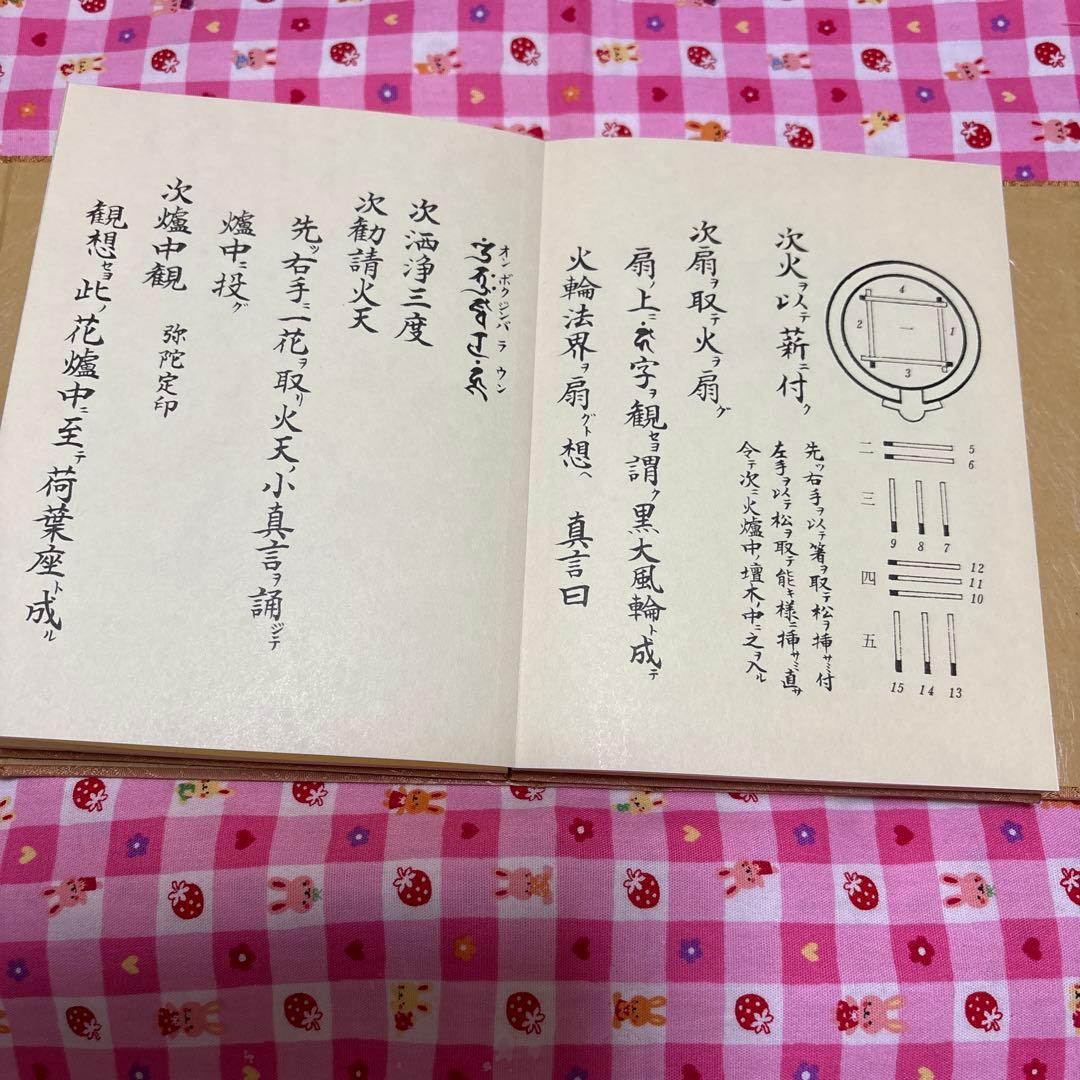 4
2 一 1
3
二 5
6
三
9 8 7
四 12
11
10
五
15 14 13
次火ヲ以テ薪ニ付ク
先ッ右手ヲ以テ箸ヲ取テ松ヲ挿サミ付
左手ヲ以テ松ヲ取テ能キ様ニ挿サミ直サ
令テ次ニ火爐中ノ壇木ノ中ニ之ヲ入ル
次扇ヲ取テ火ヲ扇グ
扇ノ上ニ字ヲ観セヨ謂ク黒大風輪ト成テ
火輪法界ヲ扇グト想ヘ 真言曰
オンボクジンバラウン
次洒浄三度
次勧請火天
先ッ右手ニ一花ヲ取リ火天ノ小真言ヲ誦ジテ
爐中ニ投グ
次爐中観 弥陀定印
観想セヨ此ノ花爐中ニ至テ荷葉座ト成ル